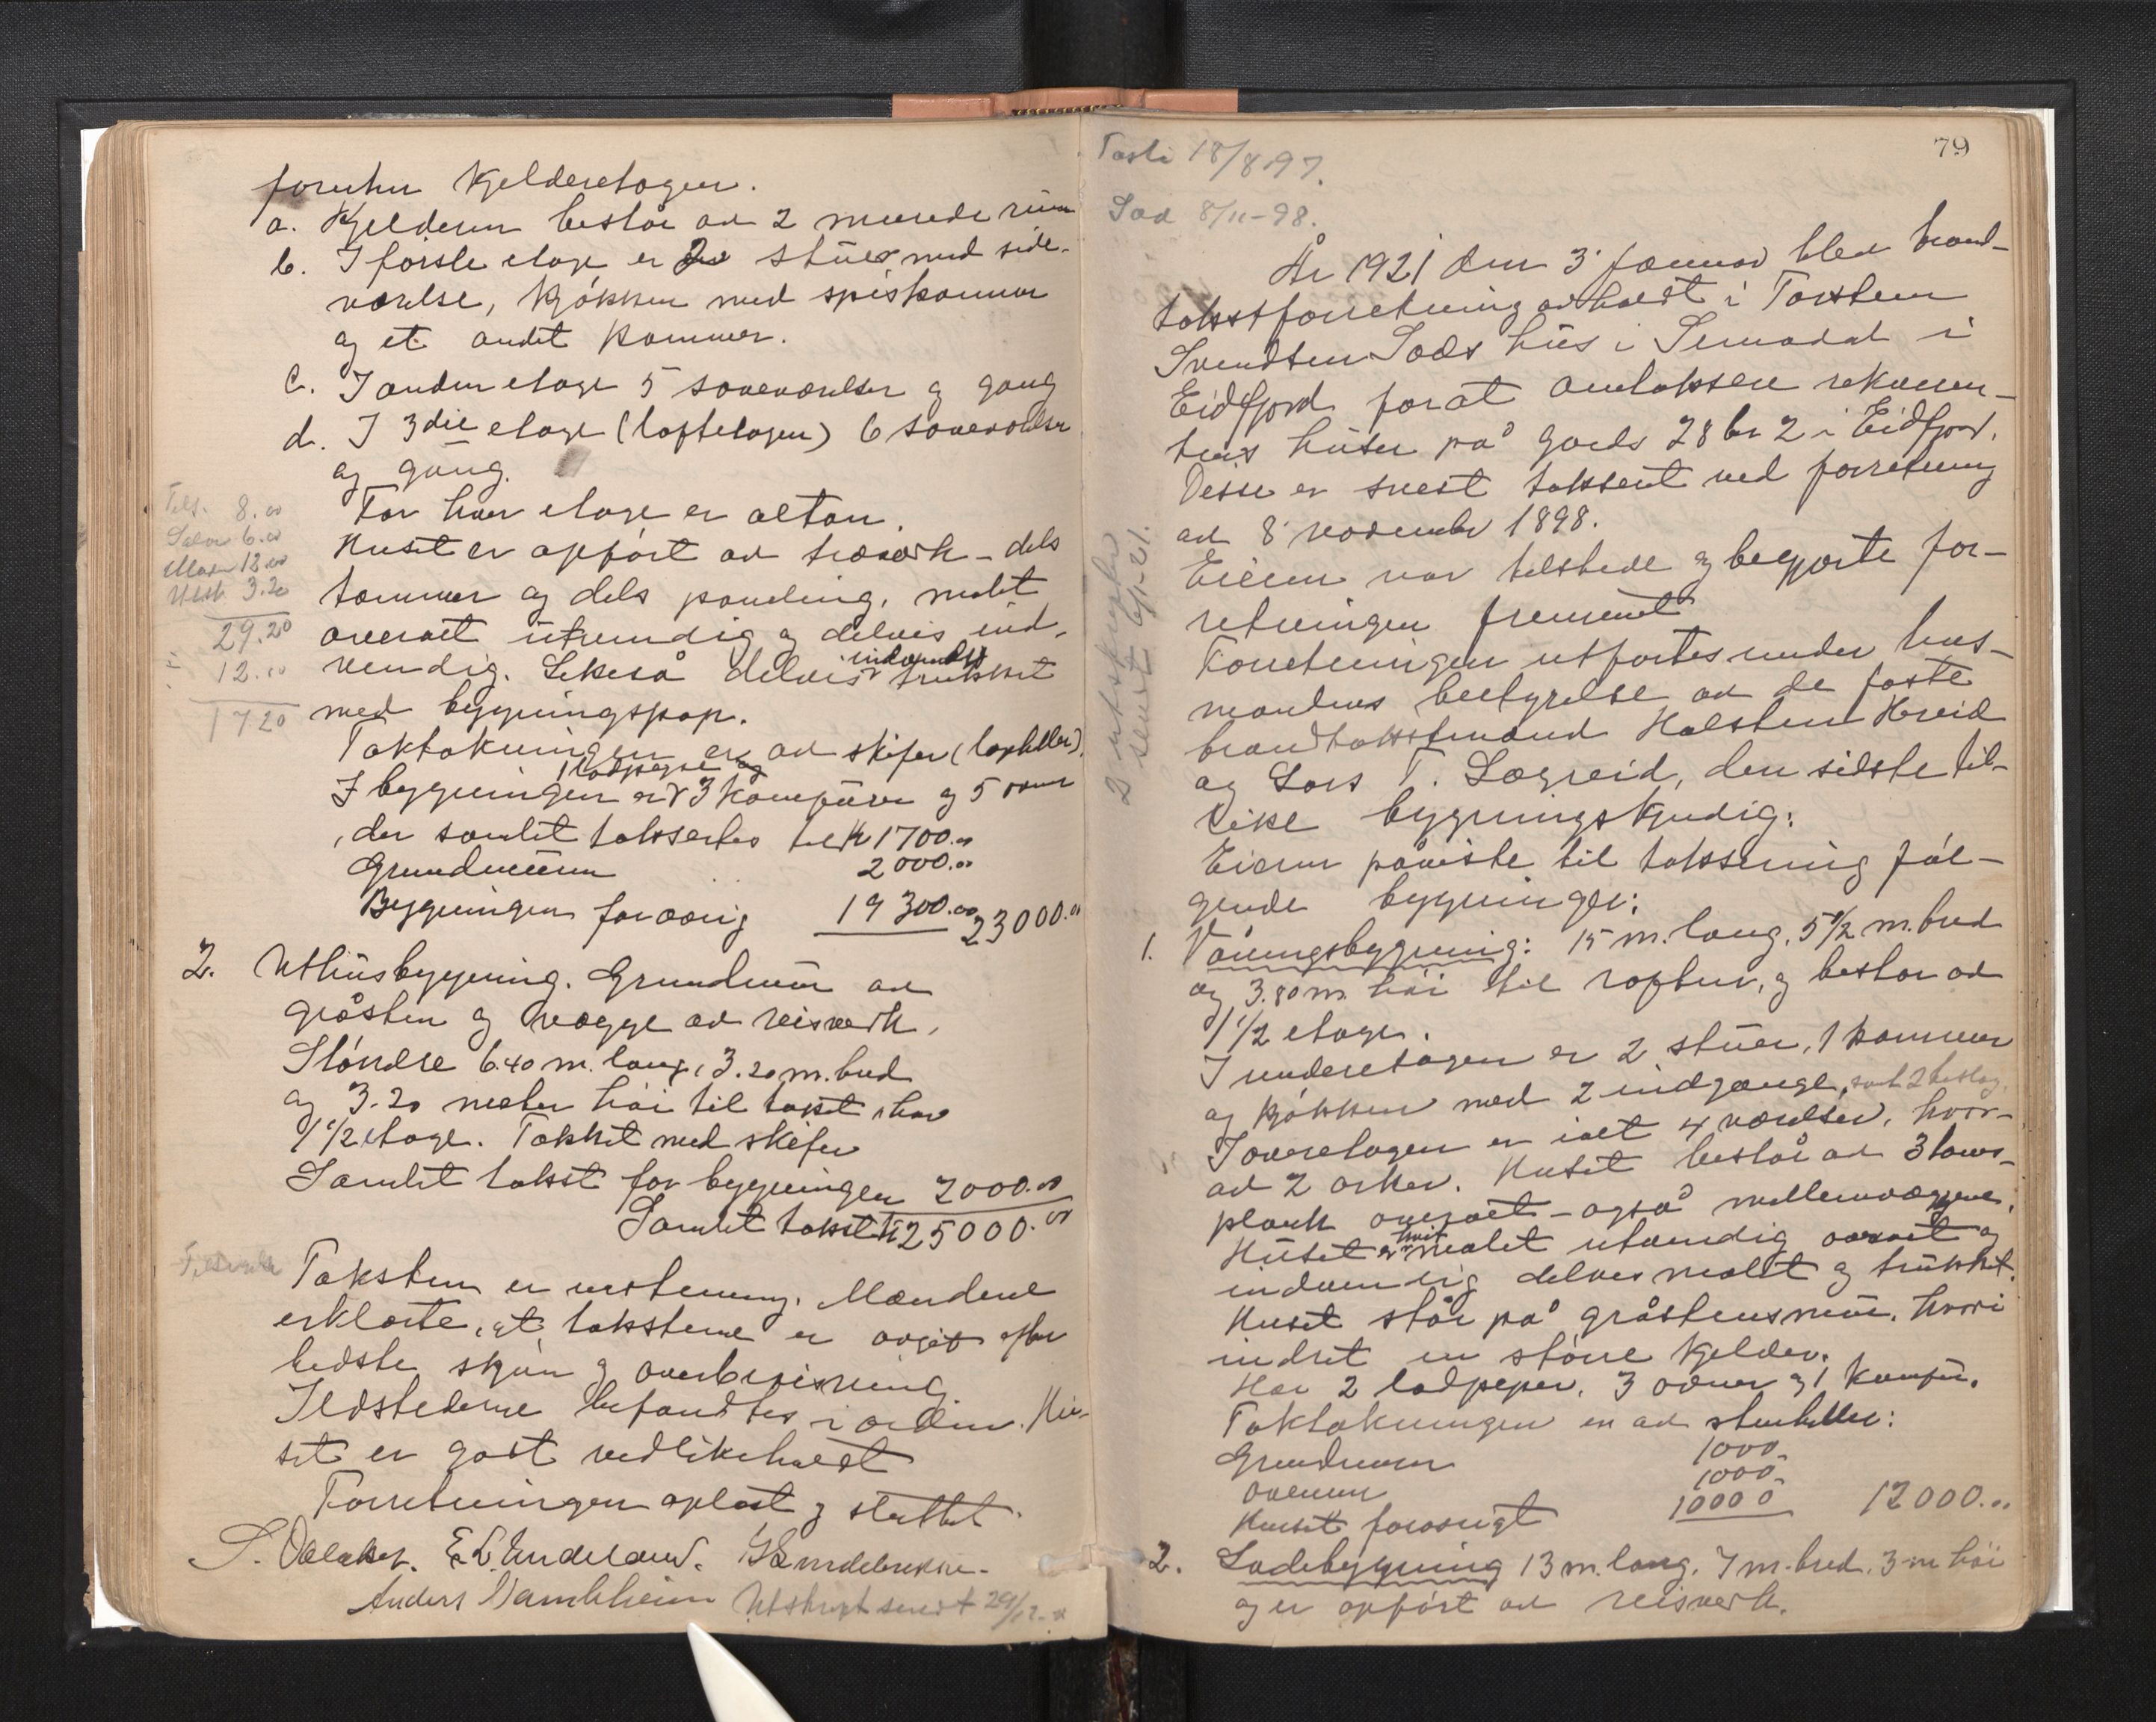 foruten Kjelderetagen.
a. Kjelderen består av 2 murede rum
b. I første etage er 2 stuer med side-
værelse, kjøkken med spiskammer
og et andet kammer.
c. I anden etage 5 soveværelser og gang
d. I 3die etage (loftetagen) 6 soveværelser
og gang.
For hver etage er altan.
Huset er opført av træverk - dels
tømmer og dels paneling, malt
overalt utvendig og delvis ind-
vendig. Likeså delvis indvendig trukket
med bygningspap.
Taktækningen er av skifer (topheller).
I bygningen er 3 komfurer og 5 ovner
, der samlet takseres til Kr 1700.00
Grundmuren 2000.00
Bygningen forøvrig 19300.00 23000.00
8.00
6.00
12.00
3.20
29.20
12.00
17 20
2. Uthusbygning. Grundmur av
gråsten og vægge av reisverk.
Størrelse 6.40 m. lang, 3.20 m. bred
og 3.20 meter høi til taket, har
1 1/2 etage. Tækket med skifer
Samlet takst for bygningen 2000.00
Samlet takst kr 25000.00
Taksten er enstemmig. Mændene
erklærte, at taksterne er avgit efter
bedste skjøn og overbevisning.
Ildstederne befandtes i orden. Hu-
set er godt vedlikeholdt
Forretningen oplæst og sluttet.
Anders Utskrift sendt 29/12
79
18/8 97.
Sæd 8/11-98.
År 1921 den 3. januar blev brand-
takstforretning avholdt i Torstein
Svendsen Sæds hus i Simadal i
Eidfjord for at omtaksere rekviren-
tens huser på gards 28 br 2 i Eidfjord.
Disse er sidst taksert ved forretning
av 8 november 1898.
Eieren var tilstede og begjærte for-
retningen fremmet
Forretningen utførtes under lens-
mandens bestyrelse av de faste
brandtakstmænd Halstein Hereid
og Lars T. Lægreid, den sidste til-
like bygningskyndig.
Eieren påviste til taksering føl-
gende bygninger:
2 utskrifter
sendt 6/1-21.
1. Våningsbygning: 15 m. lang, 5 1/2 m. bred
og 3.80 m. høi til raftene, og består av
1 1/2 etage.
I underetagen er 2 stuer, 1 kammer
og kjøkken med 2 indgange,
I overetagen er ialt 4 værelser, hvor-
av 2 arker. Huset består av 3 toms
plank overalt - også mellemvæggene.
Huset er hvit malet utvendig overalt og
indvendig delvis malt og trukket.
Huset står på gråstensmur, hvori
indret en større kjelder.
Har 2 ladpiper, 3 ovner og 1 komfur.
Taktækningen er av stenheller:
Grundmuren 1000.
Ovnene 1000.
Huset forøvrigt 10000 12000.00
2. Ladebygning 13 m. lang, 7 m. bred, 3 m høi
og er opført av reisverk.